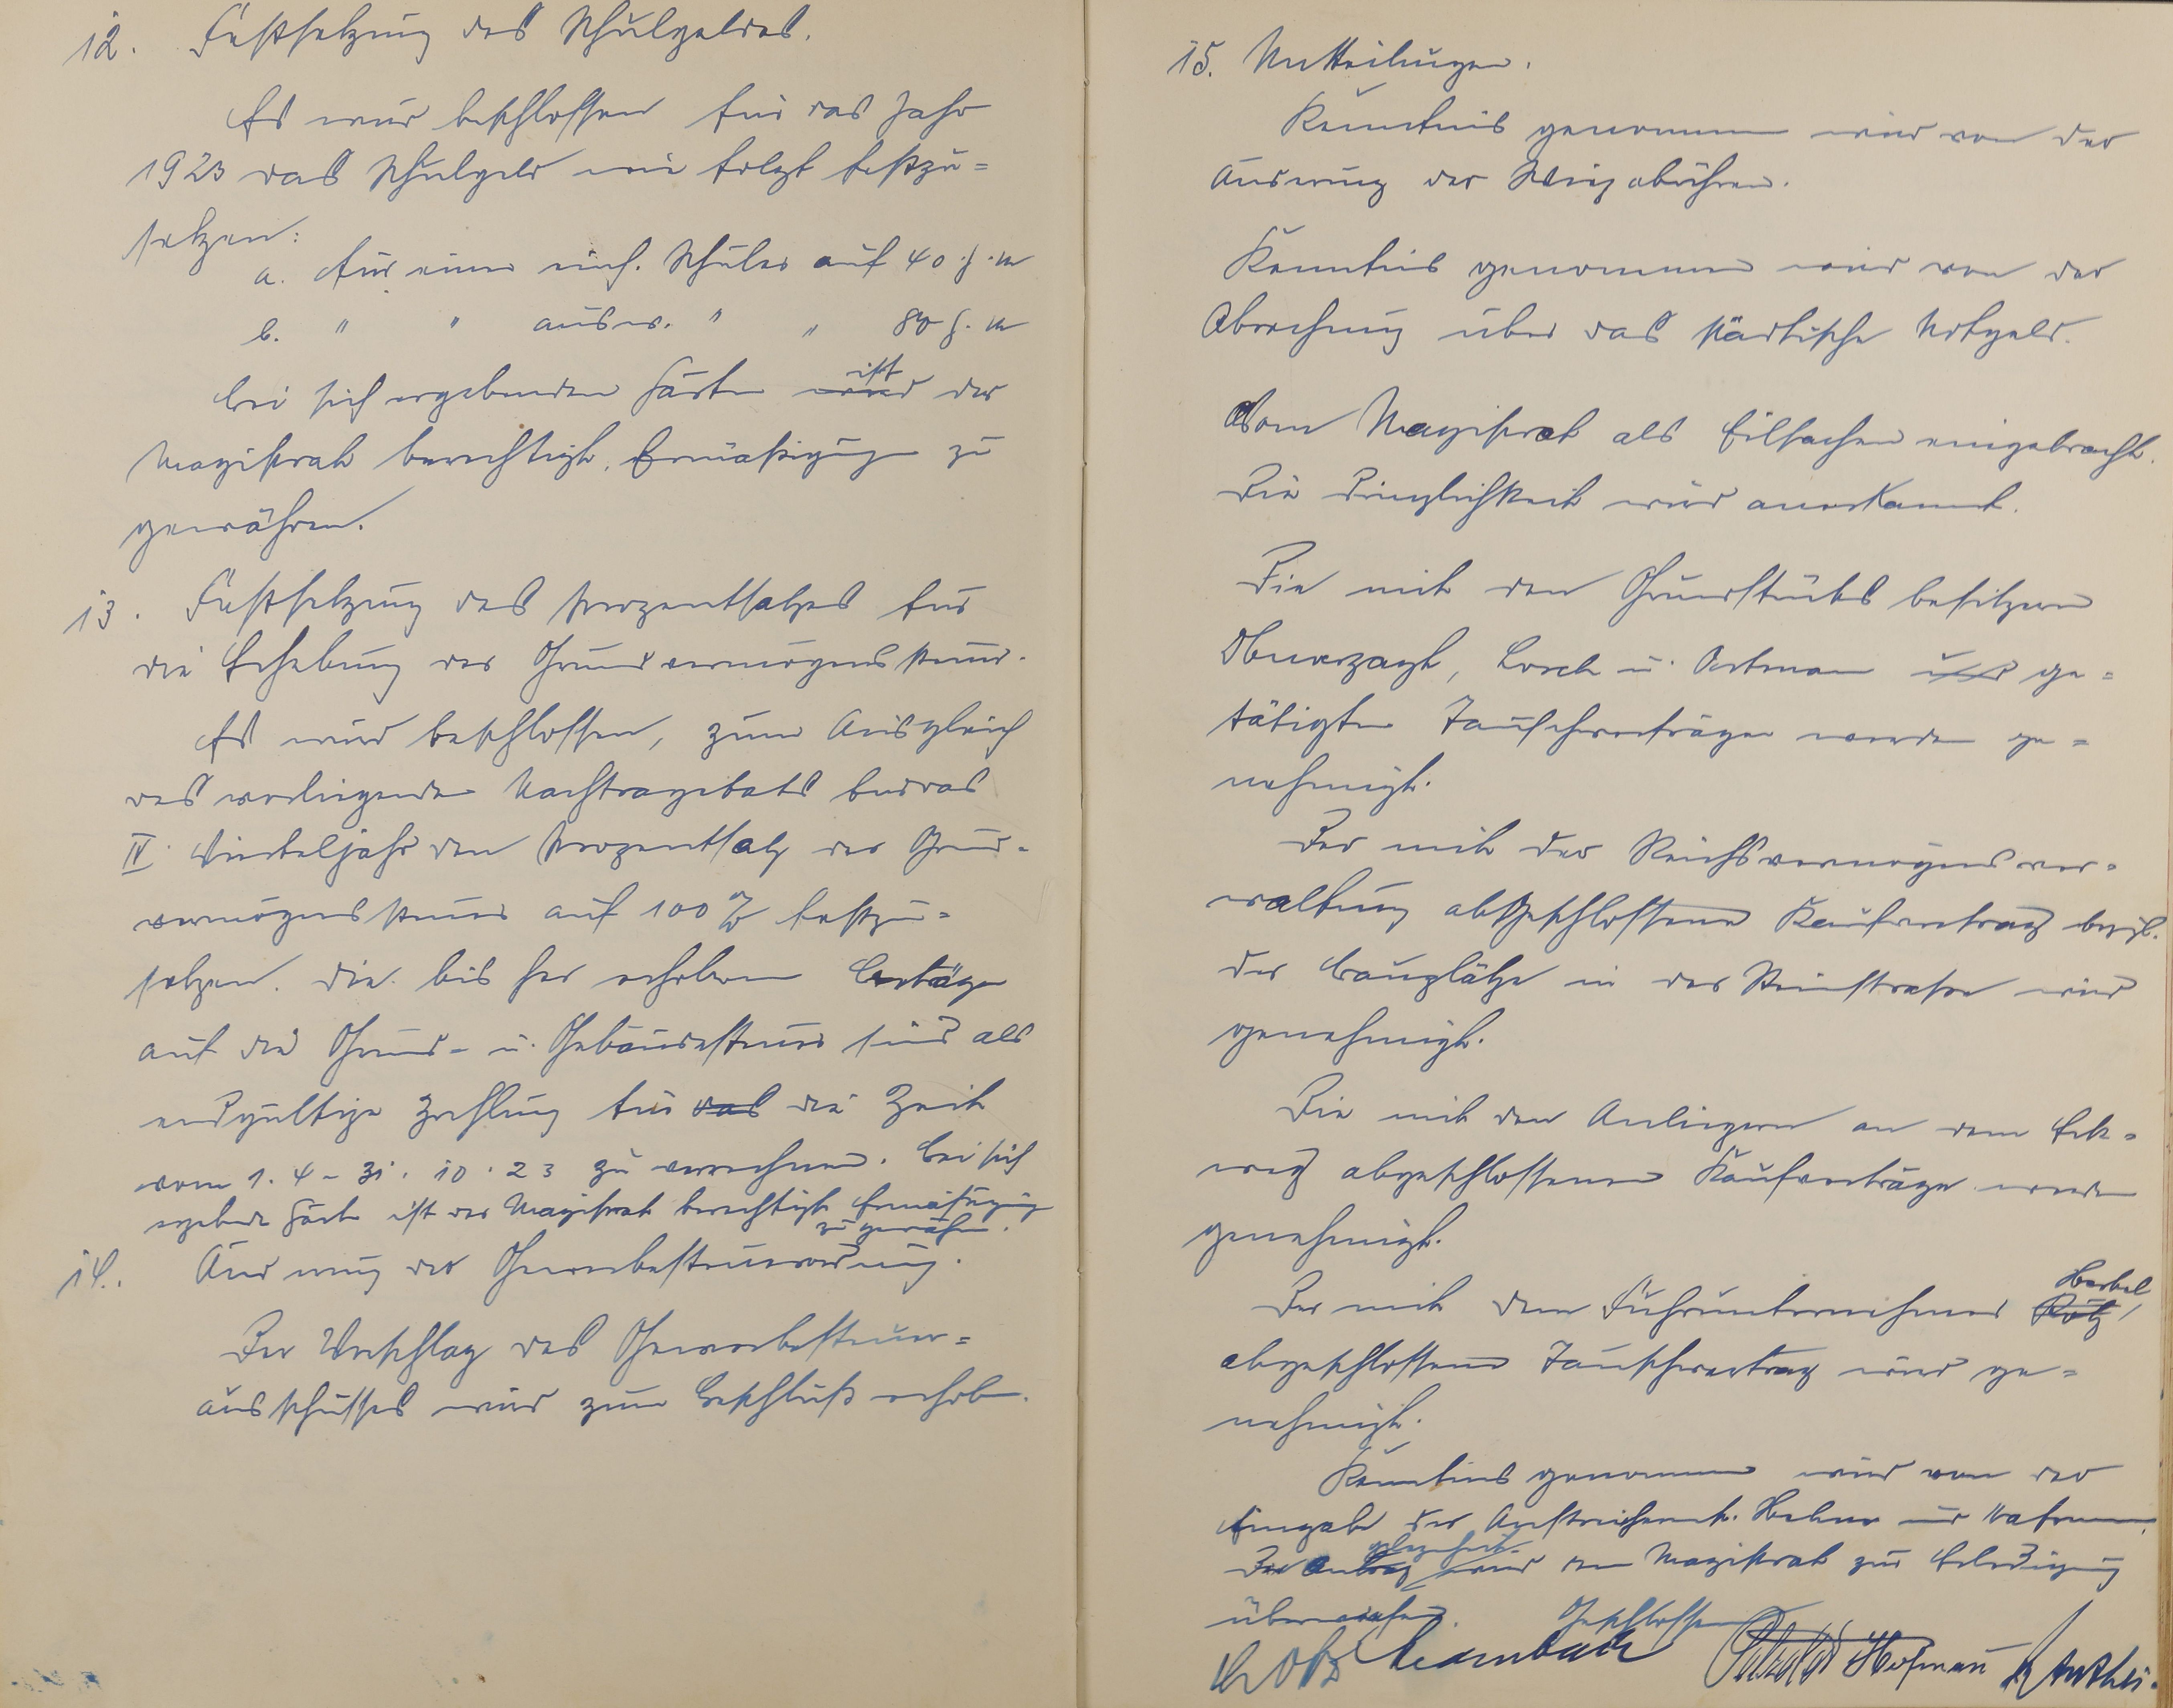 12. Festsetzung des Schulgeldes.
Es wird beschlossen für das Jahr
1923 das Schulgeld wie folgt festzu=
setzen:
a. für einen einh. Schüler auf 40 g. M
b. " " ausw. " " 80 g. M
Bei sich ergebenden Härten wird ist der
Magistrat berechtigt, Ermäßigung zu
gewähren.
13. Festsetzung des Prozentsatzes für
die Erhebung der Grundvermögenssteuer.
Es wird beschlossen, zum Ausgleich
des vorliegenden Nachtragetats für das
IV. Vierteljahr den Prozentsatz der Grund-
vermögenssteuer auf 100 % festzu-
setzen. Die bis her erhobenen Beträge
auf die Grund- u. Gebäudesteuer sind als
endgültige Zahlung für das die Zeit
vom 1. 4 - 31. 10. 23 zu verrechnen. Bei sich
ergebende Härte ist der Magistrat berechtigt Ermäßigung
zu gewähren.
14. Änderung der Gewerbesteuerordnung.
Der Vorschlag des Gewerbesteuer=
ausschusses wird zum Beschluß erhoben.
15. Mitteilungen.
Kenntnis genommen wird von der
Änderung der
Kenntnis genommen wird von der
Abrechnung über das städtische Notgeld.
Vom Magistrat als Eilsachen eingebracht.
Die Dringlichkeit wird anerkannt.
Die mit den Grundstücks besitzern
Lorch u. Ortman und ge=
tätigten Tauschverträge werden ge=
nehmigt.
Der mit der Reichsvermögensver-
waltung abgeschlossene Kaufvertrag bezgl.
der Bauplätze in der Steinstrasse wird
genehmigt.
Die mit den Anliegern an dem Eck-
weg abgeschlossenen Kaufverträge werden
genehmigt.
Der mit dem Fuhrunternehmer Rotz Herbel
abgeschlossene Tauschvertrag wird ge=
nehmigt.
Kenntnis genommen wird von der
Eingabe der
Der Antrag Angelegenheit wird dem Magistrat zur Erledigung
überwiesen. Geschlossen
Hofmann